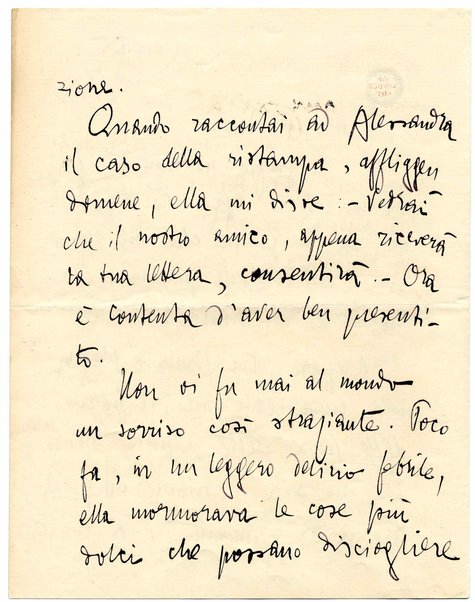 zione.
Quando raccontai ad Alessandra
il caso della ristampa, affliggen
domene, ella mi disse: - Vedrai
che il nostro amico, appena riceverà
la tua lettera, consentirà. - Ora
è contenta d'aver ben presenti-
to.
Non vi fu mai al mondo
un sorriso così straziante. Poco
fa, in un leggero delirio febrile,
ella mormorava le cose più
dolci che possano disciogliere